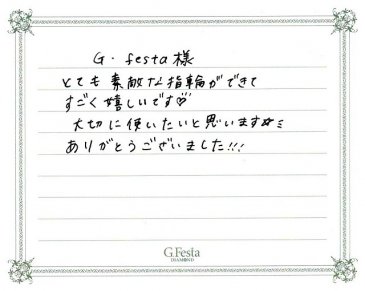 G・festa様
とても素敵な指輪ができて
すごく嬉しいです♡
大切に使いたいと思います☆ミ
ありがとうございました!!!
G.Festa
DIAMOND